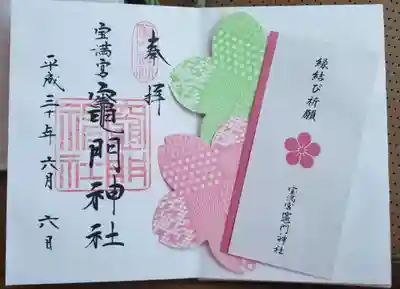 奉拝
宝満宮
竈門神社
平成三十年六月六日
縁結び祈願
宝満宮竈門神社